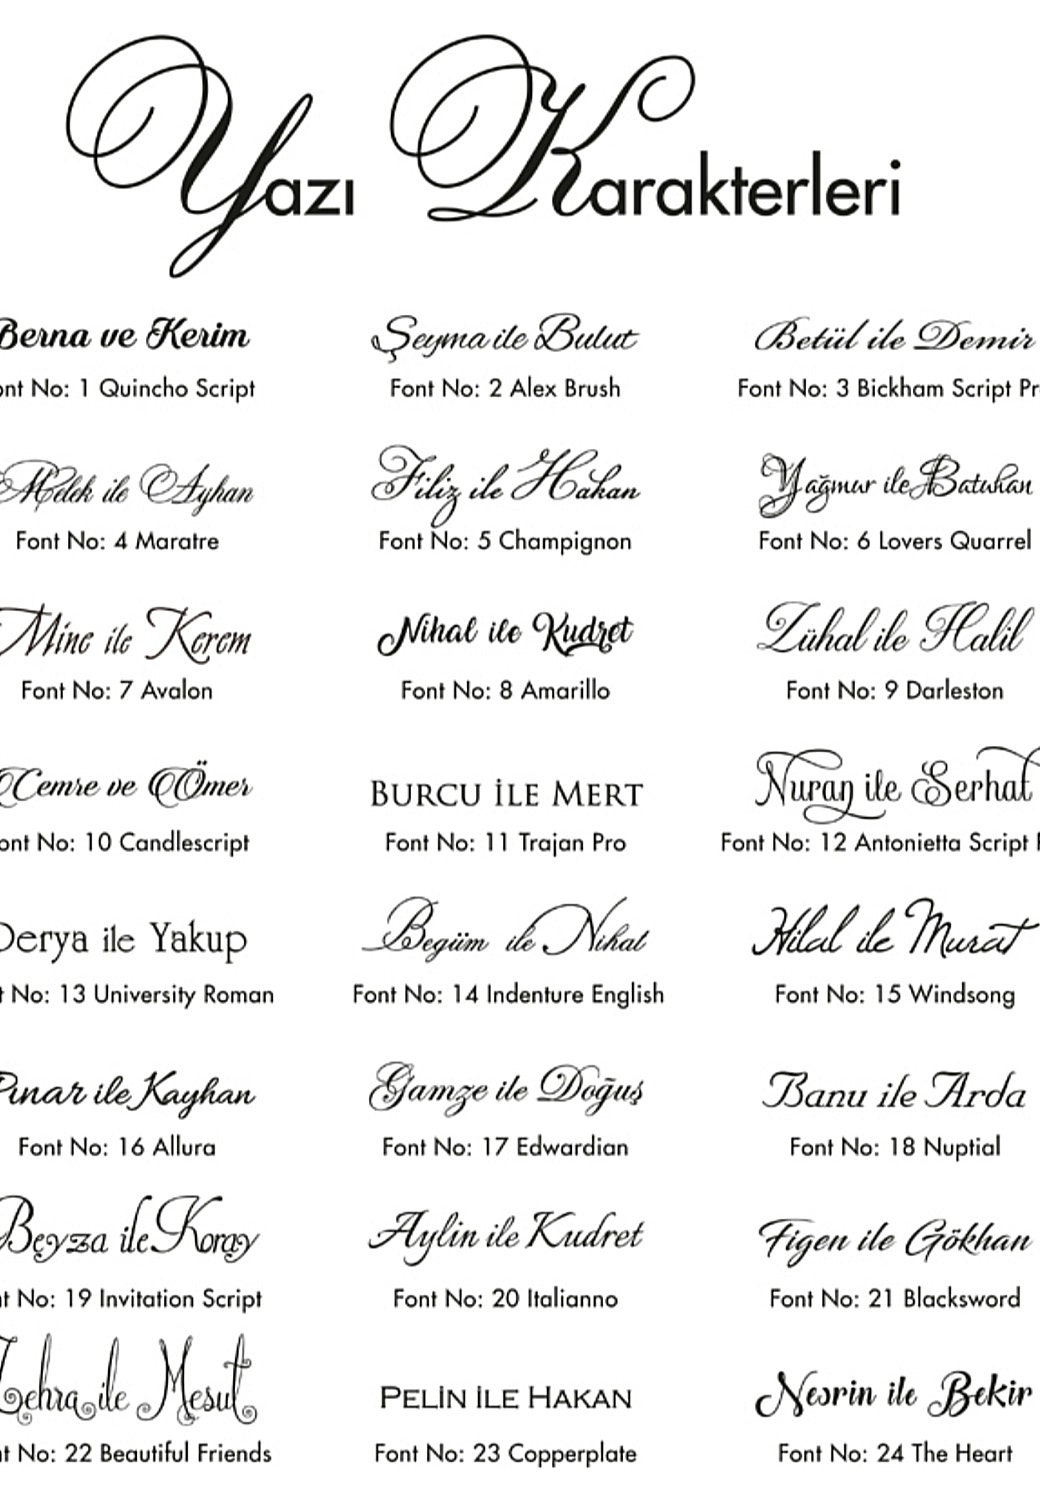 Yazı Karakterleri
Berna ve Kerim Şeyma ile Bulut Betül ile Demir
ont No: 1 Quincho Script Font No: 2 Alex Brush Font No: 3 Bickham Script Pr
Melek ile Ayhan Filiz ile Hakan Yağmur ile Batuhan
Font No: 4 Maratre Font No: 5 Champignon Font No: 6 Lovers Quarrel
Mine ile Kerem Nihal ile Kudret Zühal ile Halil
Font No: 7 Avalon Font No: 8 Amarillo Font No: 9 Darleston
Cemre ve Ömer BURCU İLE MERT Nuran ile Serhat
ont No: 10 Candlescript Font No: 11 Trajan Pro Font No: 12 Antonietta Script P
Derya ile Yakup Begüm ile Nihat Hilal ile Murat
t No: 13 University Roman Font No: 14 Indenture English Font No: 15 Windsong
Pınar ile Kayhan Gamze ile Doğuş Banu ile Arda
Font No: 16 Allura Font No: 17 Edwardian Font No: 18 Nuptial
Beyza ile Koray Aylin ile Kudret Figen ile Gökhan
t No: 19 Invitation Script Font No: 20 Italianno Font No: 21 Blacksword
Zehra ile Mesut PELİN İLE HAKAN Nesrin ile Bekir
t No: 22 Beautiful Friends Font No: 23 Copperplate Font No: 24 The Heart